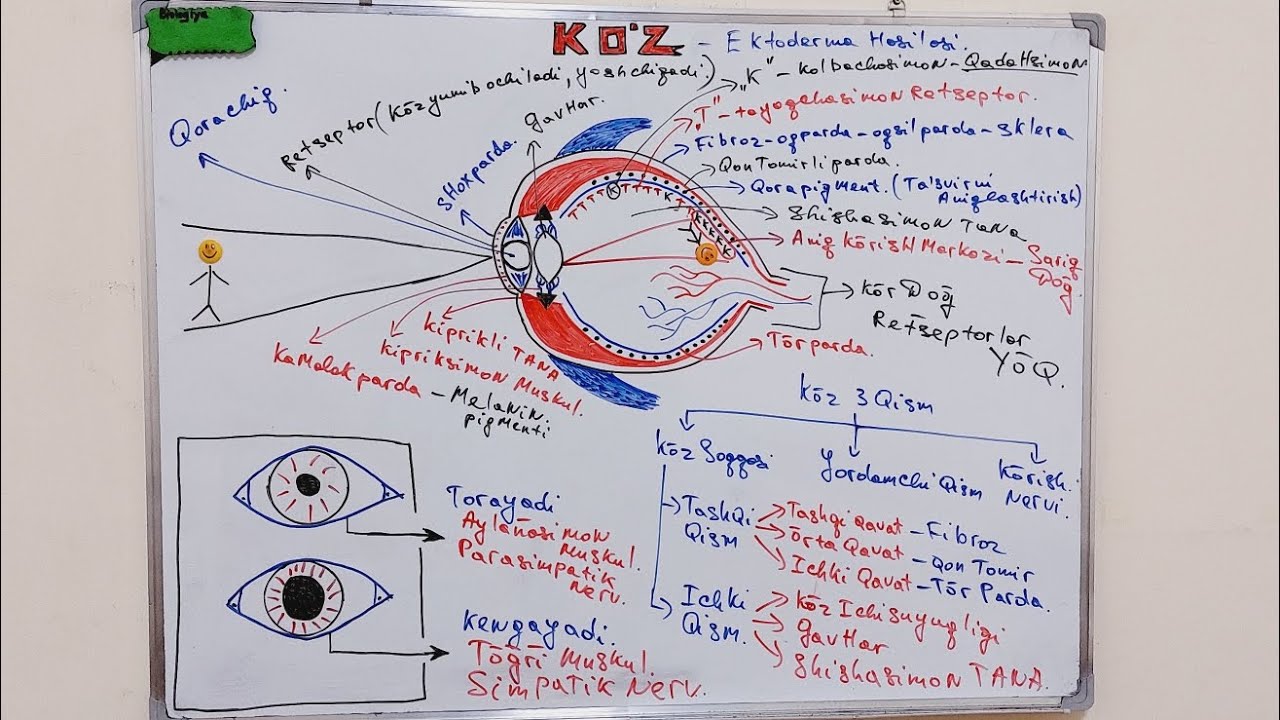 KO'Z - Ektoderma Hosilasi.
"K" - Kolbachasimon - Qadahsimon
"T" - tayoqchasimon Retseptor.
Fibroz - oqparda - oqsil parda - sklera
Qon Tomirli parda.
Qora pigment. (Ta'svirni
Aniqlashtirish)
Shishasimon Tana
Aniq Kōrish Markazi - Sariq
Dog.
Kōr Doğ
Retseptorlar
YŌQ.
Tōrparda.
Qorachiq.
Retseptor (Kōz yumib ochiladi, yosh chiqadi.)
SHoxparda.
gavHar.
Kiprikli TANA
Kipriksimon Muskul.
Kamalak parda - Melanin.
pigmenti
T T T K T T T T K T T
K K K K K
K
Torayadi
Aylanasimon
Muskul.
Parasimpatik
Nerv.
Kengayadi.
Tōğri Muskul.
Simpatik Nerv.
Kōz 3 Qism
Kōz Soqqasi
Yordamchi Qism
Kōrish
Nervi.
Tashqi
Qism
Tashqi Qavat - Fibroz
Ōrta Qavat - Qon Tomir
Ichki Qavat - Tōr Parda.
Ichki
Qism.
Kōz Ichi suyuqligi
gavHar
Shishasimon TANA.